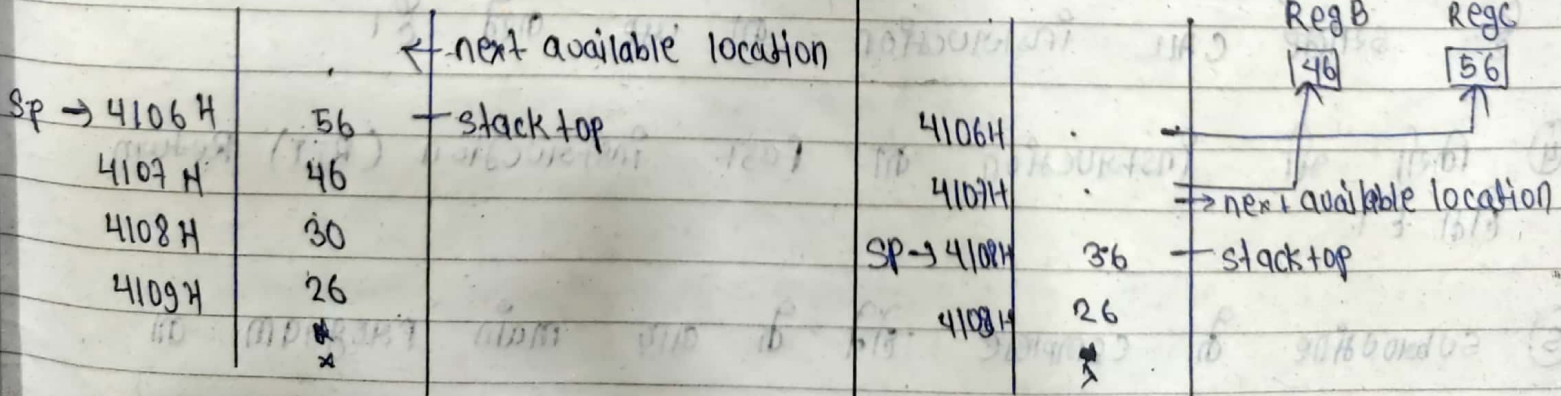 ← next available location
SP → 4106H 56 stack top
4107H 46
4108H 30
4109H 26
Reg B Reg C
46 56
4106H
4107H → next available location
SP → 4108H 36 stack top
4109H 26